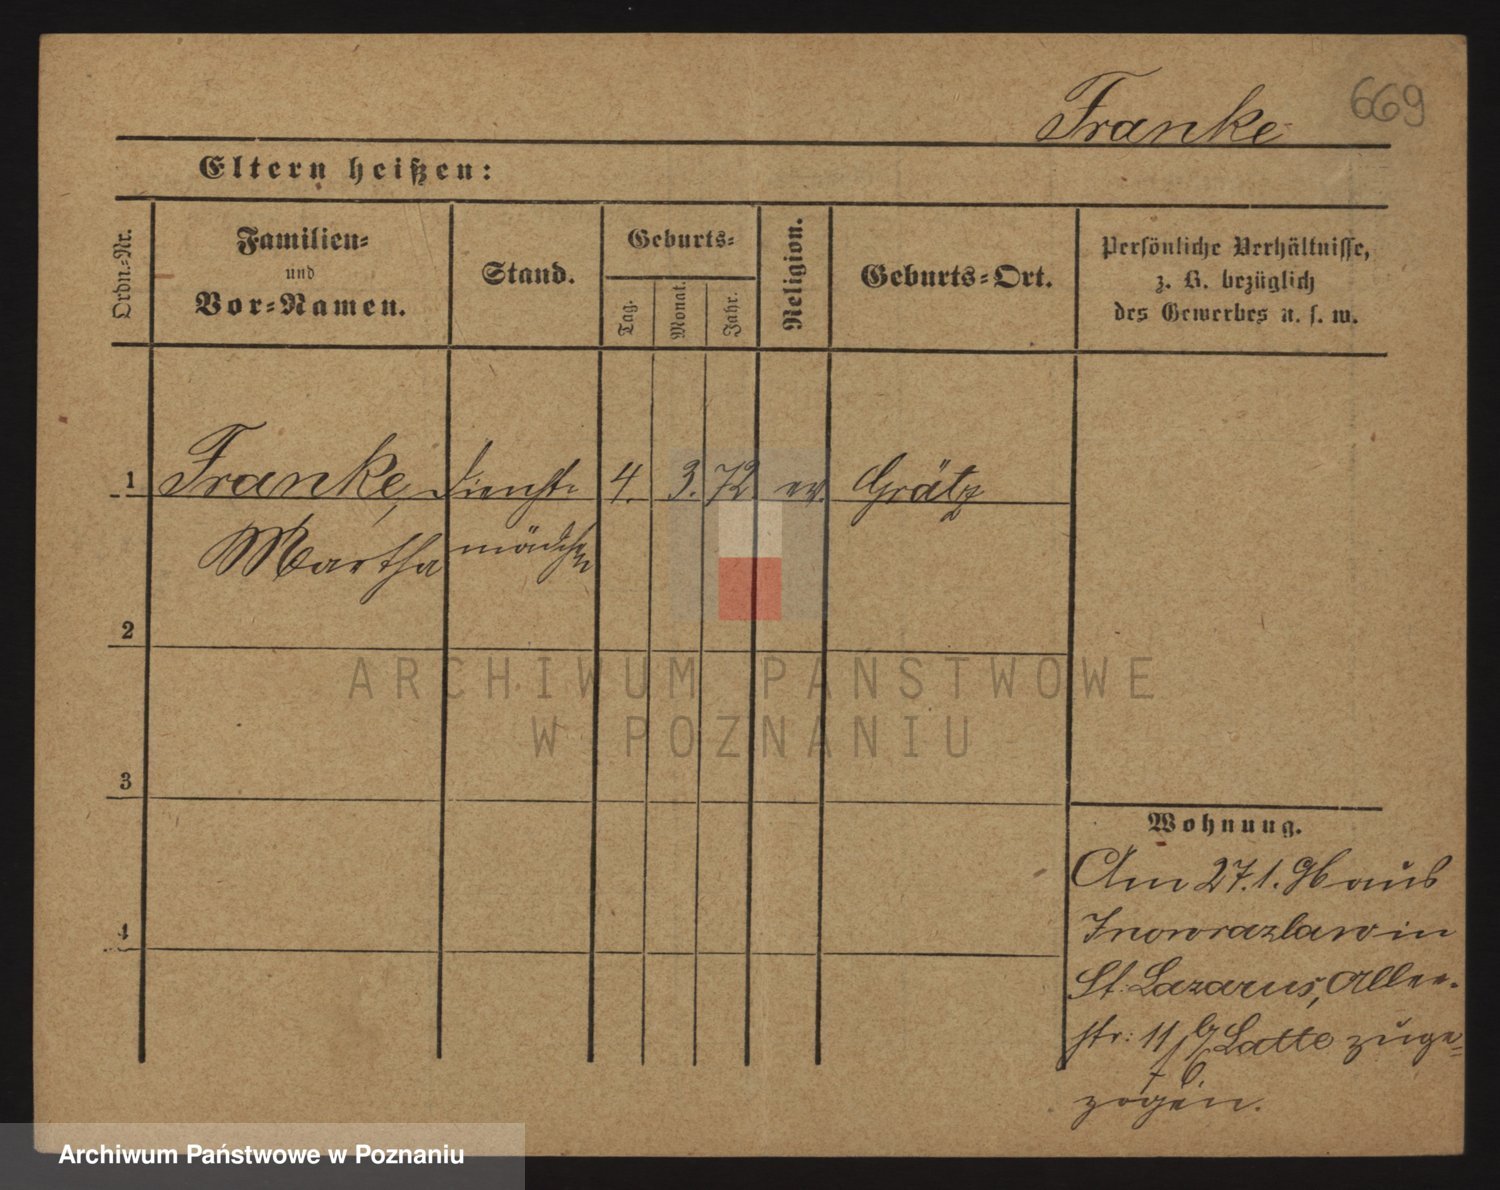 669
Franke
Eltern heißen:
Ordn.-Nr.
Familien-
und
Vor-Namen.
Stand.
Geburts-
Tag.
Monat.
Jahr.
Religion.
Geburts-Ort.
Persönliche Verhältnisse,
z. B. bezüglich
des Gewerbes u. s. w.
1 Franke, Dienst- 4. 3. 72 ev. Grätz
Martha mädchen
2
3
4
Wohnung.
Am 27.1.96 aus
Inowrazlaw in
St. Lazarus, Allee-
str: 11 b/ Latte zuge-
zogen.
ARCHIWUM PAŃSTWOWE
W POZNANIU
Archiwum Państwowe w Poznaniu